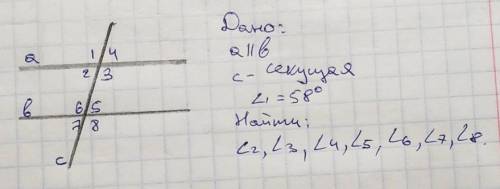 a
1 4
2 3
в
6 5
7 8
c
Дано:
a||в
c- секущая
∠1=58°
Найти:
∠2,∠3,∠4,∠5,∠6,∠7,∠8.